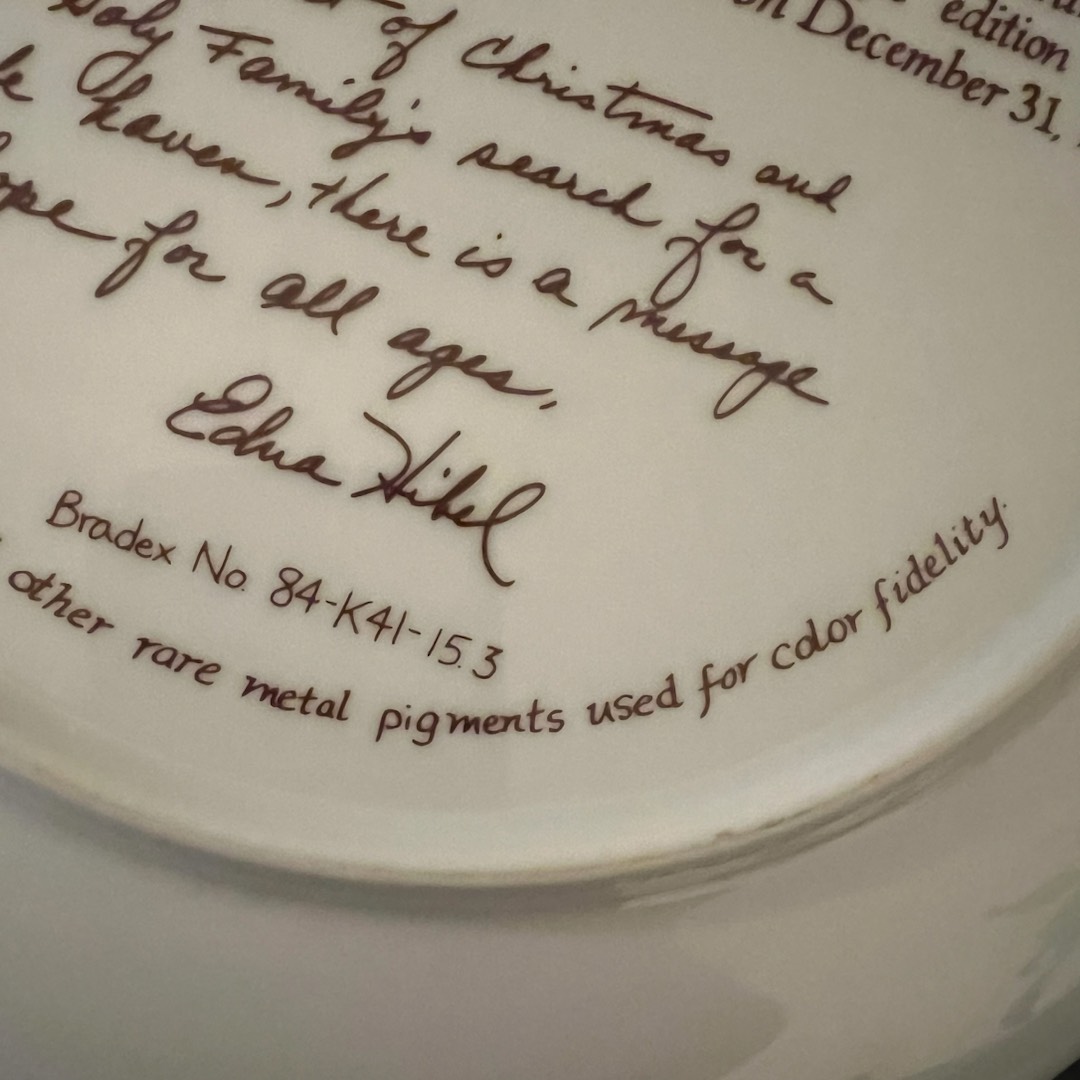 edition
on December 31,
of Christmas and
Holy Family's search for a
haven, there is a message
for all ages,
Edna Hibel
Bradex No. 84-K41-15.3
other rare metal pigments used for color fidelity.